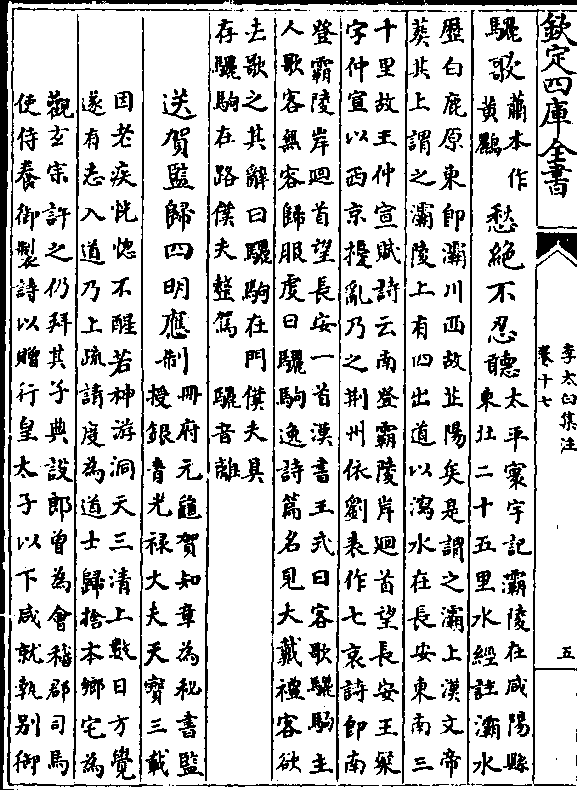 欽定四庫全書
李太白集注
卷十七
五
驪歌
蕭本作
黃鸝
愁絕不忍聽
太平寰宇記灞陵在咸陽縣
東北二十五里水經註灞水
歷白鹿原東即灞川西故芷陽矣是謂之灞上漢文帝
葬其上謂之灞陵上有四出道以瀉水在長安東南三
十里故王仲宣賦詩云南登霸陵岸廻首望長安王粲
字仲宣以西京擾亂乃之荆州依劉表作七哀詩即南
登霸陵岸廻首望長安一首漢書王式曰客歌驪駒主
人歌客無客歸服虔曰驪駒逸詩篇名見大戴禮客欲
去歌之其辭曰驪駒在門僕夫具
存驪駒在路僕夫整駕 驪音離
送賀監歸四明應制
冊府元龜賀知章為秘書監
授銀青光禄大夫天寶三載
因老疾恍惚不醒若神游洞天三清上數日方覺
遂有志入道乃上疏請度為道士歸捨本鄉宅為
觀玄宗許之仍拜其子典設郎曾為會稽郡司馬
使侍養御製詩以贈行皇太子以下咸就執别御